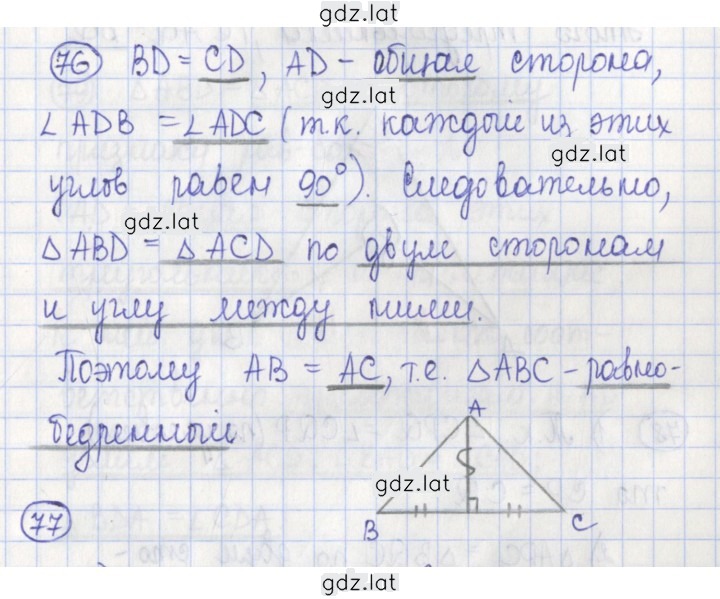 gdz.lat
76 BD = CD, AD - общая сторона,
gdz.lat
∠ADB = ∠ADC (т.к. каждый из этих
gdz.lat
углов равен 90°). Следовательно,
gdz.lat
△ABD = △ACD по двум сторонам
и углу между ними.
Поэтому AB = AC, т.е. △ABC - равно-
бедренный
A
gdz.lat
B C
77
gdz.lat